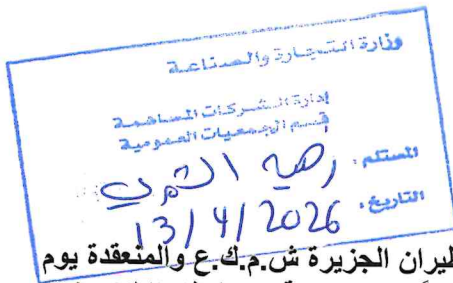 وزارة التجارة والصناعة
إدارة الشركات المساهمة
قسم الجمعيات العمومية
المستلم :
التاريخ : 13/4/2026
طيران الجزيرة ش.م.ك.ع والمنعقدة يوم